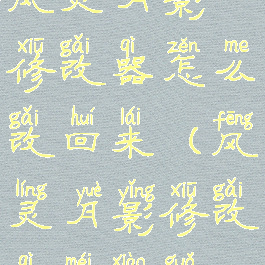 xiū gǎi qì zěn me
修改器怎么
gǎi huí lái fēng
改回来（风
líng yuè yǐng xiū gǎi
灵月影修改
qì méi xiào guǒ